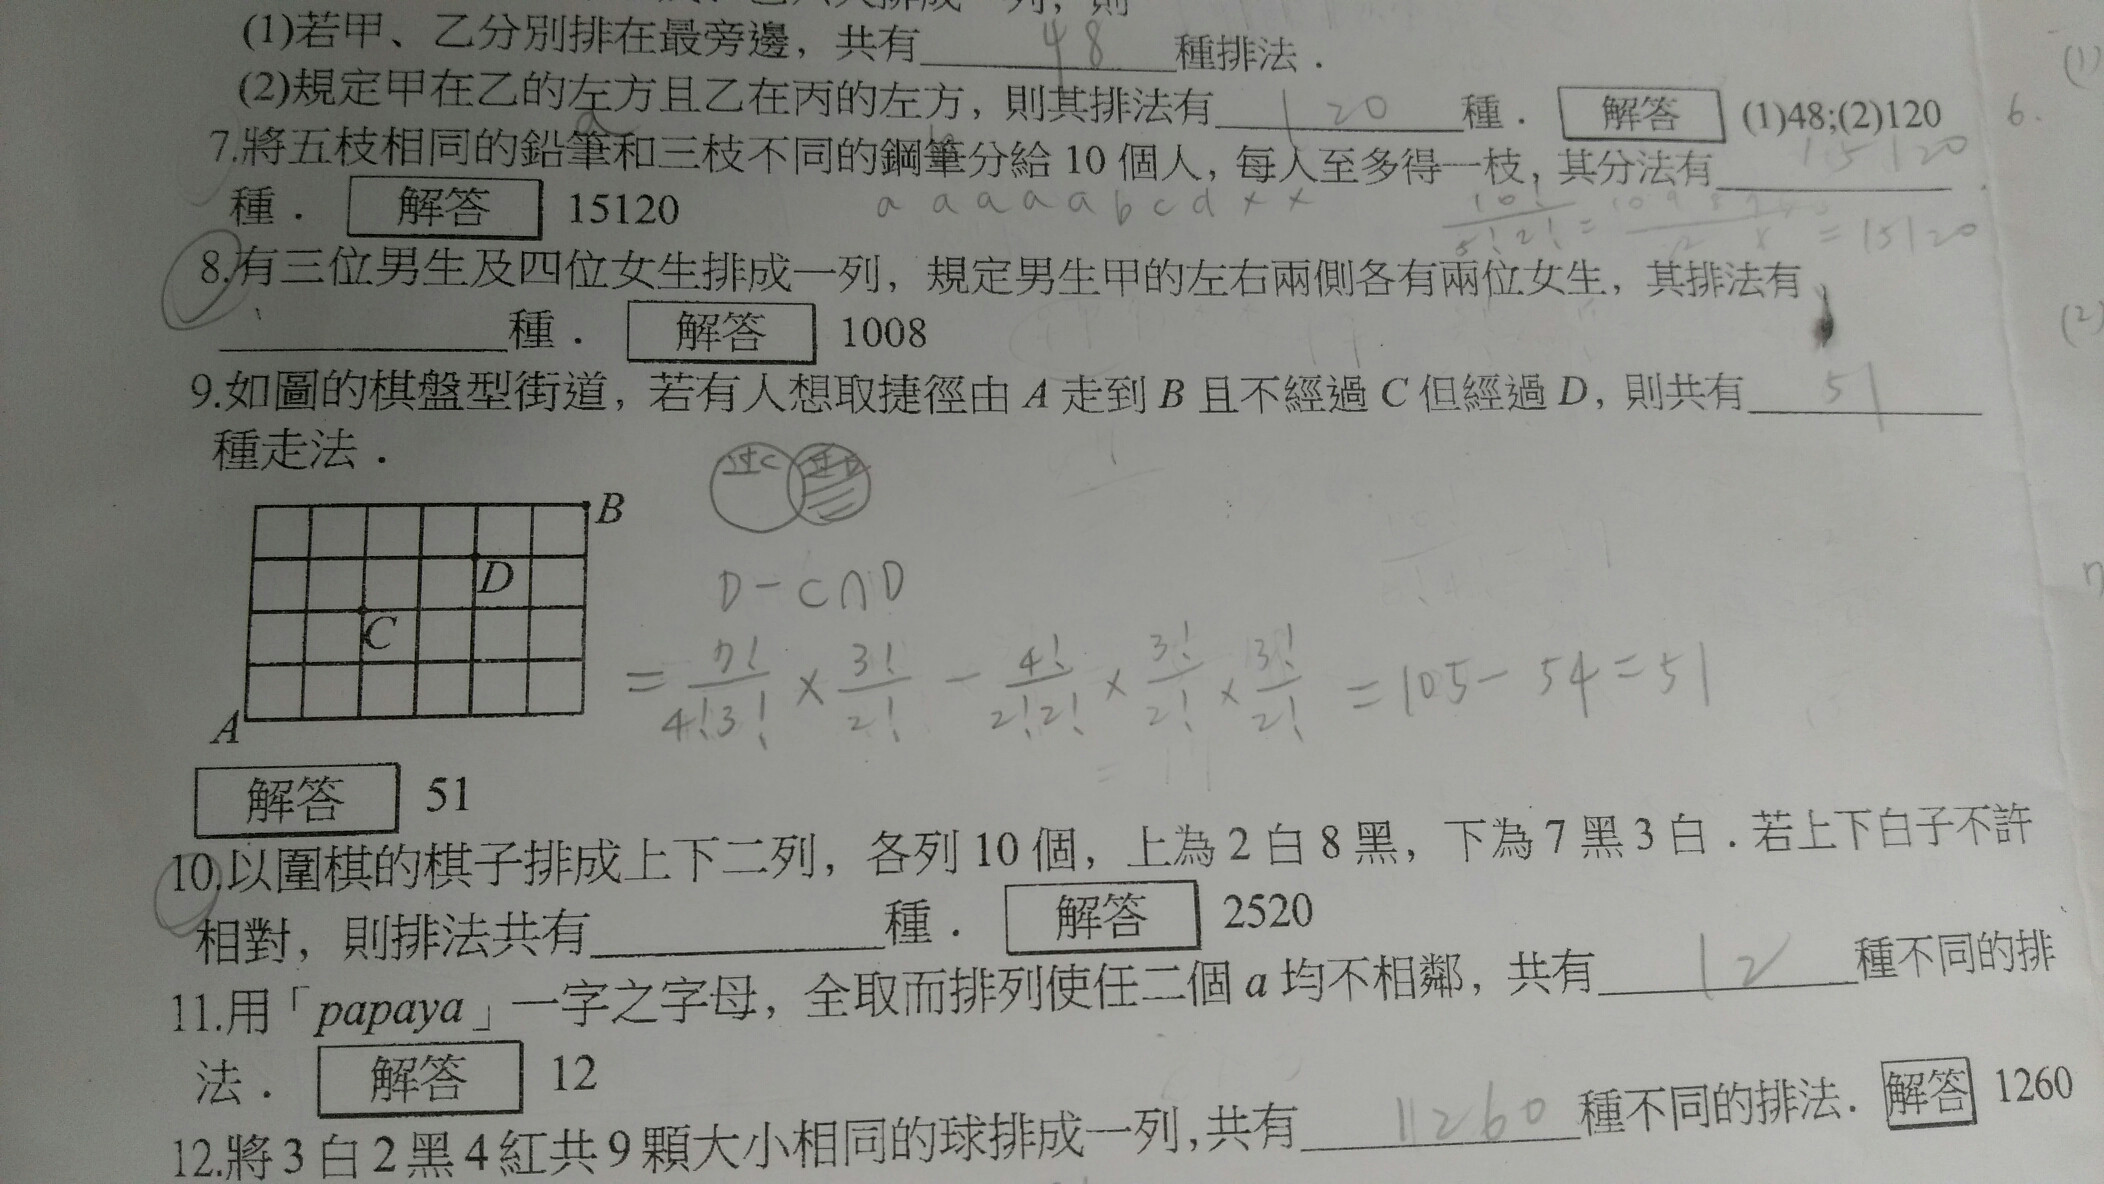 (1)若甲、乙分別排在最旁邊，共有 48 種排法．
(2)規定甲在乙的左方且乙在丙的左方，則其排法有 120 種． 解答 (1)48;(2)120
6.
7.將五枝相同的鉛筆和三枝不同的鋼筆分給 10 個人，每人至多得一枝，其分法有 15120
種． 解答 15120
a a a a a b c d x x
10!/5!2! = = 15120
8.有三位男生及四位女生排成一列，規定男生甲的左右兩側各有兩位女生，其排法有
種． 解答 1008
9.如圖的棋盤型街道，若有人想取捷徑由 A 走到 B 且不經過 C 但經過 D，則共有 51
種走法．
过C 过D
B
D
C
A
D - C∩D
= 7!/4!3! × 3!/2! - 4!/2!2! × 3!/2! × 3!/2! = 105 - 54 = 51
解答 51
10.以圍棋的棋子排成上下二列，各列 10 個，上為 2 白 8 黑，下為 7 黑 3 白．若上下白子不許
相對，則排法共有 種． 解答 2520
11.用「papaya」一字之字母，全取而排列使任二個 a 均不相鄰，共有 12 種不同的排
法． 解答 12
12.將 3 白 2 黑 4 紅共 9 顆大小相同的球排成一列，共有 1260 種不同的排法． 解答 1260
(1)
(2)